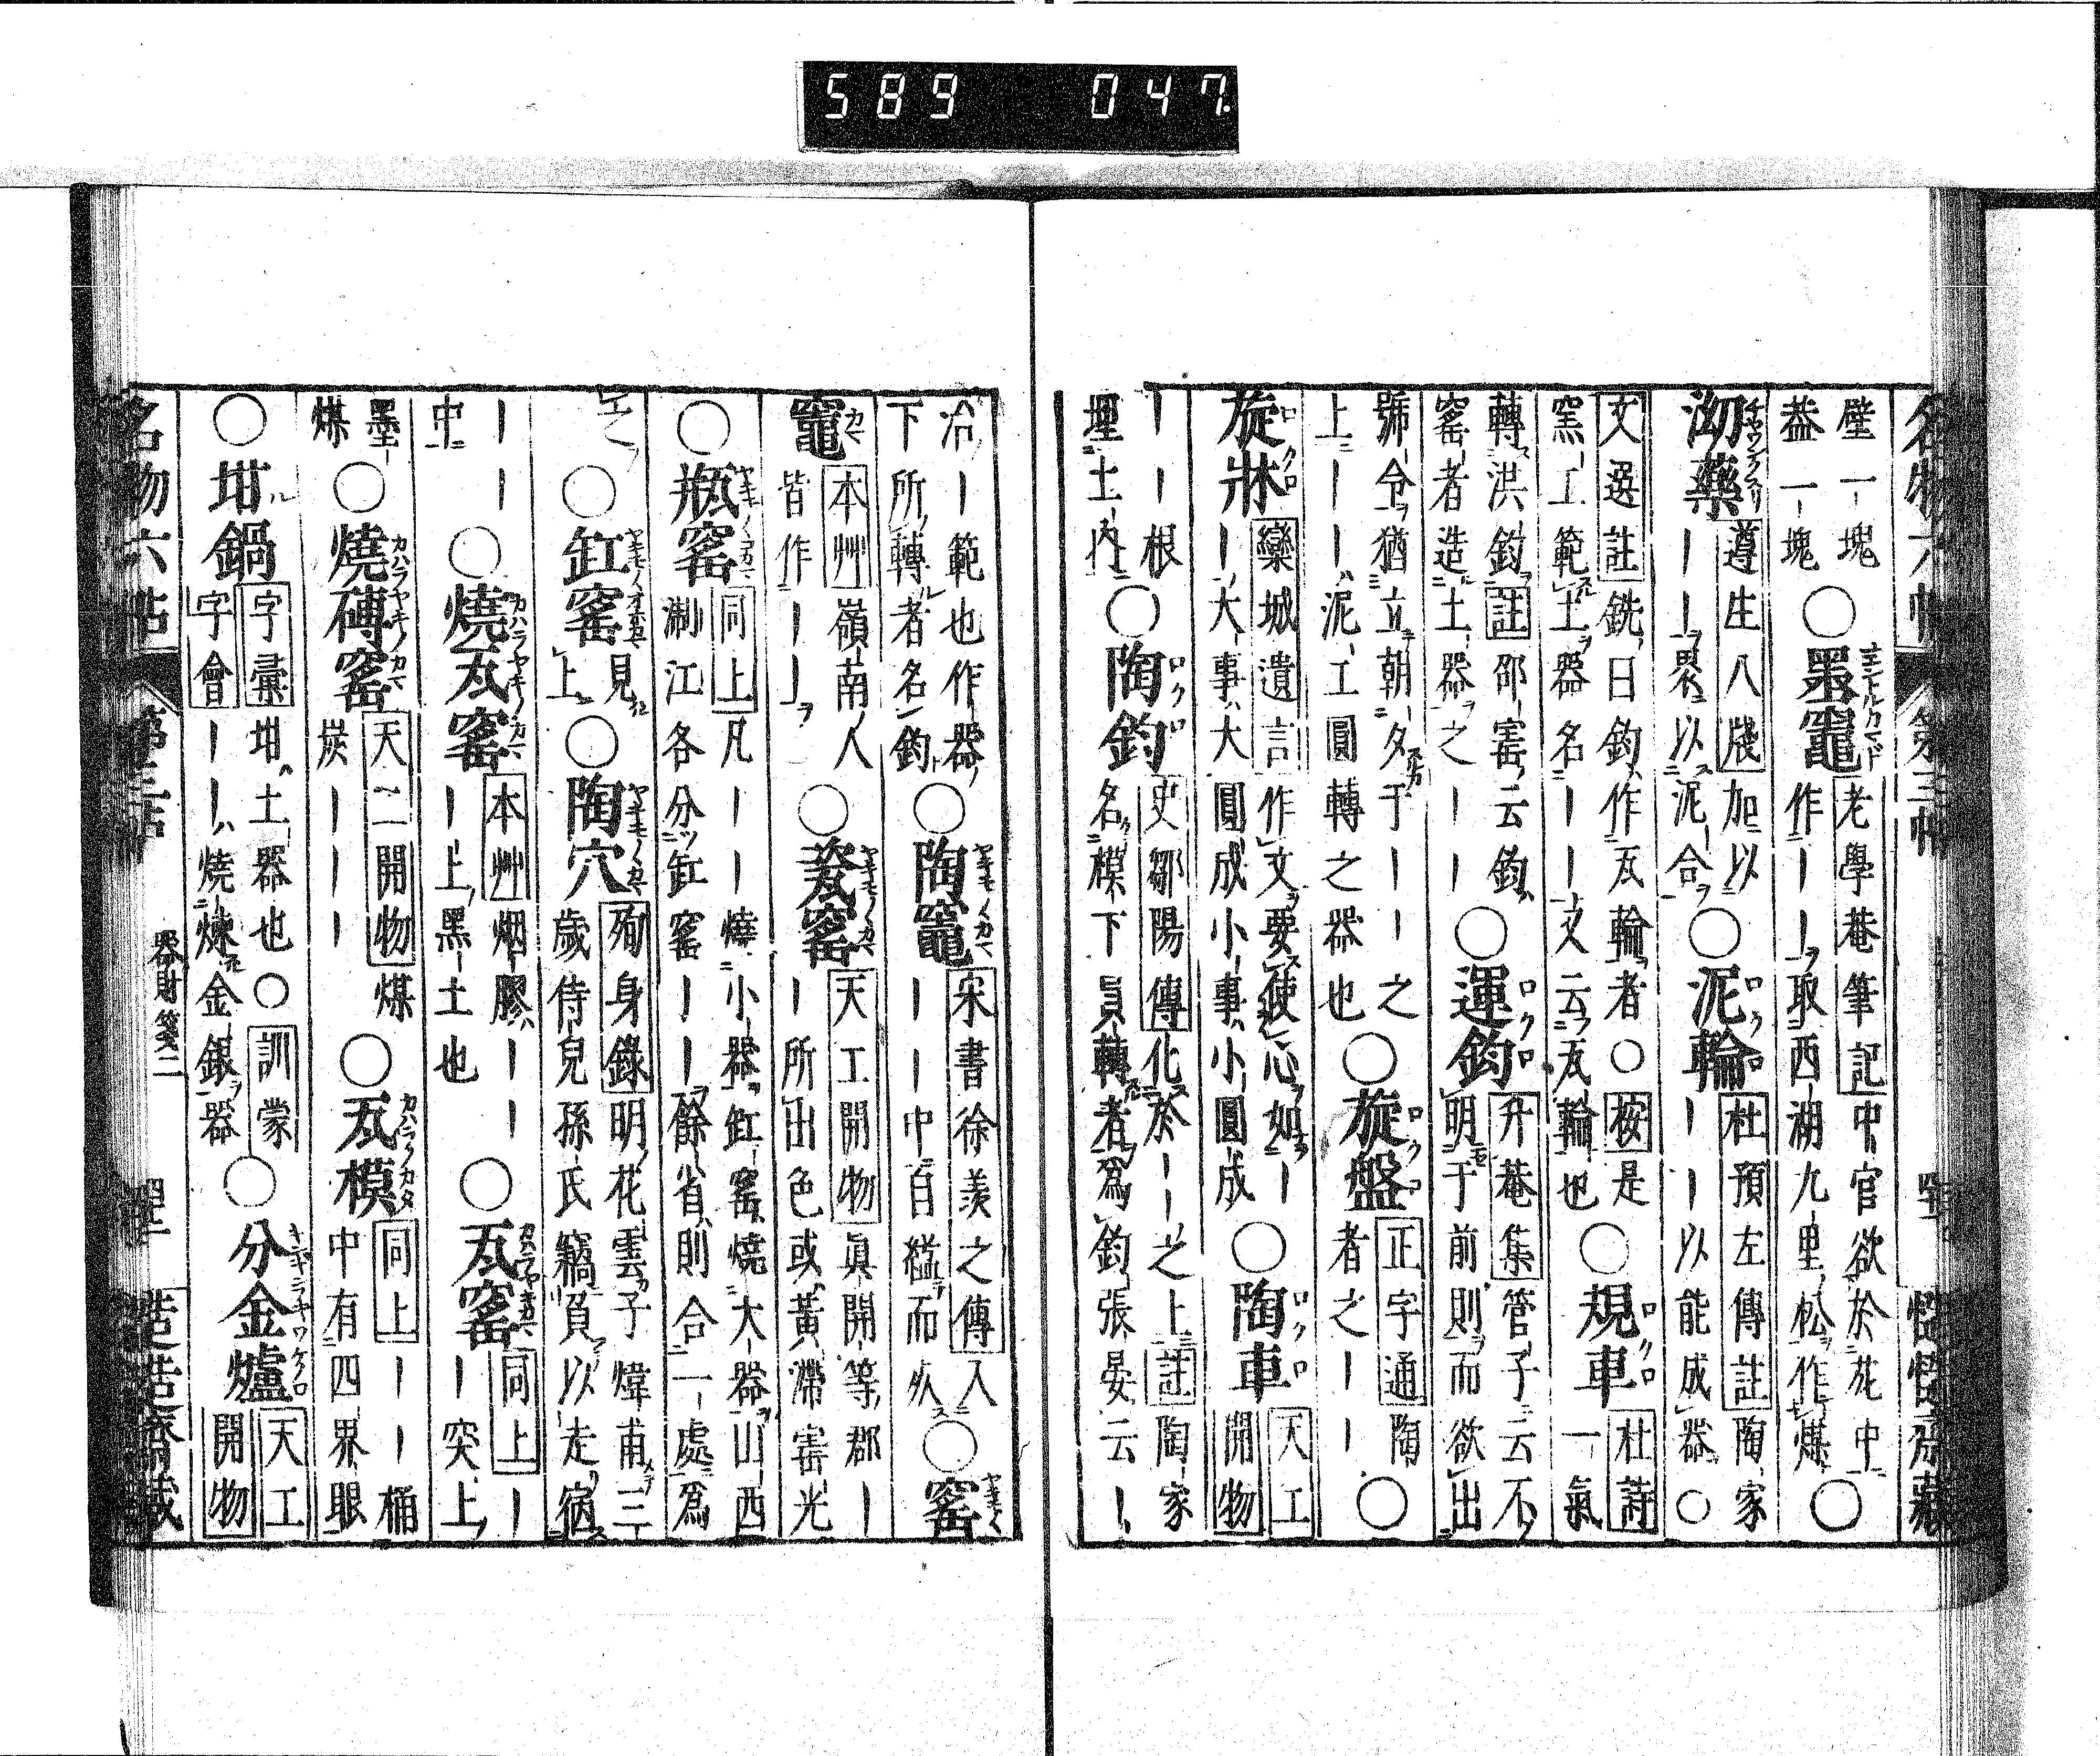 589 047
名物六帖 第三帖
壁一塊
益一塊○墨竈老學菴筆記中官欲於苑中
作一一取西湖九里松作煤○
泑藥遵生八牋加以
一一畧以泥合○泥輪杜預左傳註陶家
一一以能成器○
文選註銑曰鈞作瓦輪者○桉是
窯工範土器名一一文云瓦輪也○規車杜詩
一氣
轉洪鈞註邵寚云鈞
窰者造土器之一一○運鈞升菴集管子云不
明于前則而欲出
號令猶立朝夕于一一之
上一一泥工圓轉之器也○旋盤正字通陶
者之一一○
旋牀欒城遺言作文要使心如一
一大事大圓成小事小圓成○陶車天工
開物
一一根
埋土內○陶鈞史鄒陽傳化於一一之上註陶家
名模下員轉者爲鈞張晏云一
冶一範也作器
下所轉者名鈞○陶竈宋書徐羨之傳入
一一中自縊而死○窰
竈本艸嶺南人
皆作一一○瓷窰天工開物眞開等郡一
一所出色或黃滯寚光
○瓶窰同上凡一一燒小器缸窰燒大器山西
淛江各分缸窰一一餘省則合一處爲
之○缸窰見
上○陶穴殉身錄明花雲子煒甫三
歲侍兒孫氏竊負以走宿
一一
中○燒瓦窰本艸烟膠一一
一上黑土也○瓦窰同上一
一突上
墨
煤○燒磚窰天工開物煤
炭一一一○瓦模同上一一桶
中有四界眼
○坩鍋字彙坩土器也○訓蒙
字會一一燒煉金銀器○分金爐天工
開物
名物六帖 第三帖 器財箋二